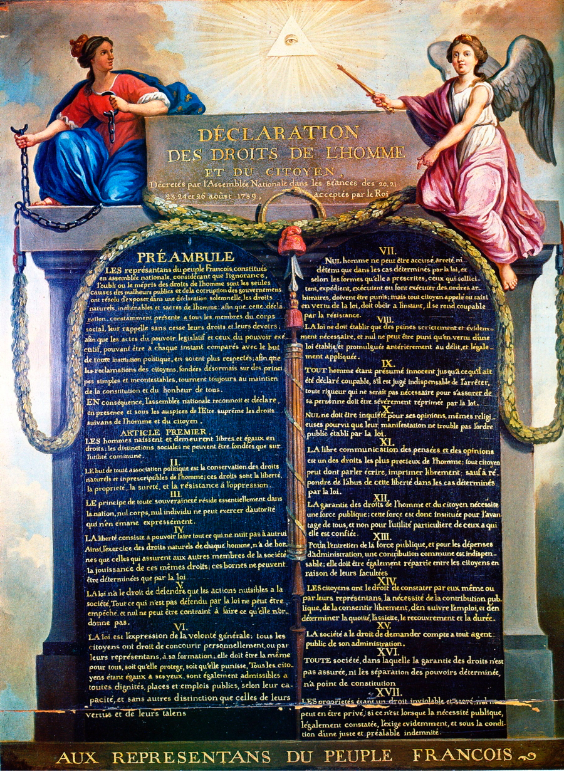 DÉCLARATION
DES DROITS DE L'HOMME
ET DU CITOYEN,
Décretés par l'Assemblée Nationale dans les séances des 20, 21
23, 24 et 26 août 1789, acceptés par le Roi
PRÉAMBULE
LES représentans du peuple François, constitués
en assemblée nationale, considérant que l'ignorance,
l'oubli ou le mépris des droits de l'homme sont les seules
causes des malheurs publics et de la corruption des gouvernemens
ont résolu d'exposer dans une déclaration solemnelle, les droits
naturels, inaliénables et sacrés de l'homme; afin que cette décla
ration, constamment présente a tous les membres du corps
social, leur rappelle sans cesse leurs droits et leurs devoirs;
afin que les actes du pouvoir législatif et ceux du pouvoir exé
cutif, pouvant être à chaque instant comparés avec le but
de toute institution politique, en soient plus respectés; afin que
les réclamations des citoyens, fondées désormais sur des princi
pes simples et incontestables, tournent toujours au maintien
de la constitution et du bonheur de tous.
EN conséquence, l'assemblée nationale reconnoit et déclare,
en présence et sous les auspices de l'Etre suprême les droits
suivans de l'homme et du citoyen.
ARTICLE PREMIER.
LES hommes naissent et demeurent libres et égaux en
droits; les distinctions sociales ne peuvent être fondées que sur
l'utilité commune.
II.
LE but de toute association politique est la conservation des droits
naturels et imprescriptibles de l'homme; ces droits sont la liberté,
la propriété, la sureté, et la résistance à l'oppression.
III.
LE principe de toute souveraineté réside essentiellement dans
la nation, nul corps, nul individu ne peut exercer d'autorité
qui n'en émane expressément.
IV.
LA liberté consiste à pouvoir faire tout ce qui ne nuit pas à autrui
Ainsi, l'exercice des droits naturels de chaque homme, n'a de bor
nes que celles qui assurent aux autres membres de la société
la jouissance de ces mêmes droits; ces bornes ne peuvent
être déterminées que par la loi
V.
LA loi n'a le droit de défendre que les actions nuisibles a la
société. Tout ce qui n'est pas défendu par la loi ne peut être
empêché, et nul ne peut être contraint à faire ce qu'elle n'or-
donne pas.
VI.
LA loi est l'expression de la volonté générale; tous les
citoyens ont droit de concourir personnellement, ou par
leurs représentans, à sa formation; elle doit être la même
pour tous, soit qu'elle protege, soit qu'elle punisse, Tous les cito
yens étant égaux à ses yeux, sont également admissibles a
toutes dignités, places et emplois publics, selon leur ca
pacité, et sans autres distinction que celles de leurs
vertus et de leurs talens
VII.
NUL homme ne peut être accusé, arreté ni
détenu que dans les cas déterminés par la loi, et
selon les formes qu'elle a prescrites, ceux qui sollici
tent, expédient, exécutent ou font exécuter des ordres ar-
bitraires, doivent être punis; mais tout citoyen appelé ou saisi
en vertu de la loi, doit obéir a l'instant, il se rend coupable
par la résistance.
VIII.
LA loi ne doit établir que des peines strictement et évidem-
ment nécessaire, et nul ne peut être puni qu'en vertu d'une
loi établie et promulguée antérierement au délit, et légale
ment appliquée.
IX.
TOUT homme étant présumé innocent jusqu'a ce qu'il ait
été déclaré coupable, s'il est jugé indispensable de l'arrêter,
toute rigueur qui ne serait pas nécessaire pour s'assurer de
sa personne doit être sévérement réprimée par la loi.
X.
NUL ne doit être inquiété pour ses opinions, mêmes religi
euses pourvu que leur manifestation ne trouble pas l'ordre
public établi par la loi.
XI.
LA libre communication des pensées et des opinions
est un des droits les plus precieux de l'homme; tout citoyen
peut dont parler, ecrire, imprimer librement, sauf a ré-
pondre de l'abus de cette liberté dans les cas déterminés
par la loi.
XII.
LA garantie des droits de l'homme et du citoyen nécessite
une force publique; cette force est donc instituée pour l'avan
tage de tous, et non pour l'utilité particuliere de ceux a qui
elle est confiée.
XIII.
POUR l'entretien de la force publique, et pour les dépenses
d'administration, une contribution commune est indispen-
sable; elle doit être également répartie entre les citoyens en
raison de leurs facultées
XIV.
LES citoyens ont le droit de constater par eux même ou
par leurs représentans, la nécessité de la contribution pub
lique, de la consentir librement, d'en suivre l'emploi, et d'en
déterminer la quotité, l'assiette, le recouvrement et la durée.
XV.
LA société a le droit de demander compte a tout agent
public de son administration.
XVI.
TOUTE société, dans laquelle la garantie des droits n'est
pas assurée, ni les séparation des pouvoirs déterminée,
n'a point de constitution
XVII.
LES propriétés étant un droit inviolable et sacré, nul ne
peut en être privé, si ce n'est lorsque la nécessité publique,
légalement constatée, l'exige evidemment, et sous la condi-
tion d'une juste et préalable indemnité
AUX REPRESENTANS DU PEUPLE FRANCOIS